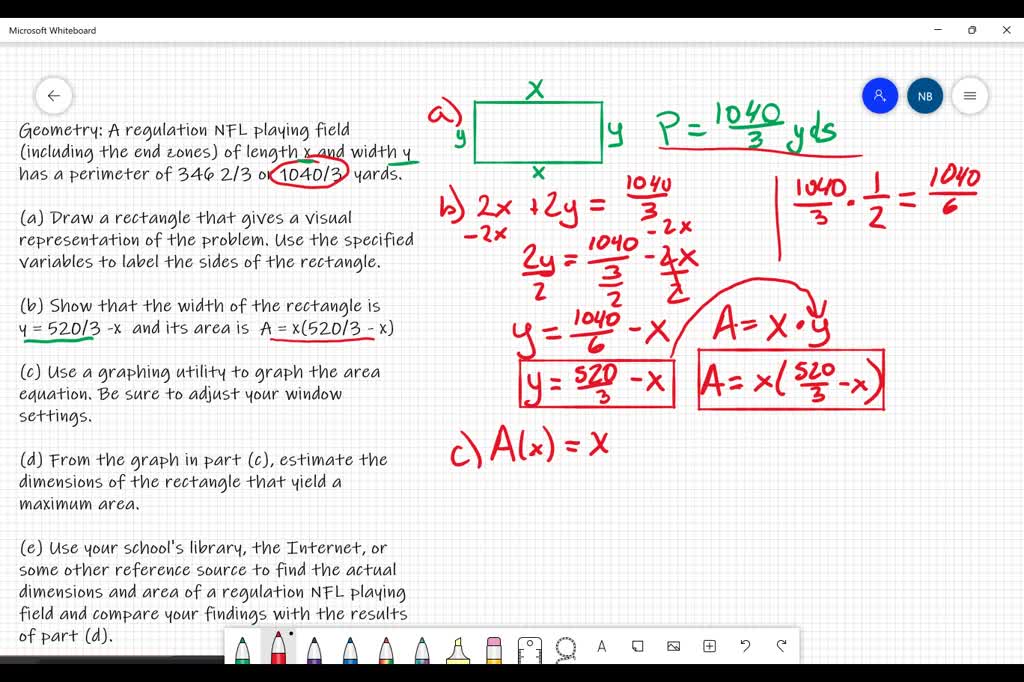 Microsoft Whiteboard
NB
Geometry: A regulation NFL playing field
(including the end zones) of length x and width y
has a perimeter of 346 2/3 or 1040/3 yards.
(a) Draw a rectangle that gives a visual
representation of the problem. Use the specified
variables to label the sides of the rectangle.
(b) Show that the width of the rectangle is
y = 520/3 -x and its area is A = x(520/3 - x)
(c) Use a graphing utility to graph the area
equation. Be sure to adjust your window
settings.
(d) From the graph in part (c), estimate the
dimensions of the rectangle that yield a
maximum area.
(e) Use your school's library, the Internet, or
some other reference source to find the actual
dimensions and area of a regulation NFL playing
field and compare your findings with the results
of part (d).
a)
x
y
y
x
P = 1040/3 yds
b) 2x + 2y = 1040/3
-2x -2x
2y/2 = 1040/3/2 - 2x/2
y = 1040/6 - x
y = 520/3 - x
1040/3 · 1/2 = 1040/6
A = x · y
A = x(520/3 - x)
c) A(x) = x
A